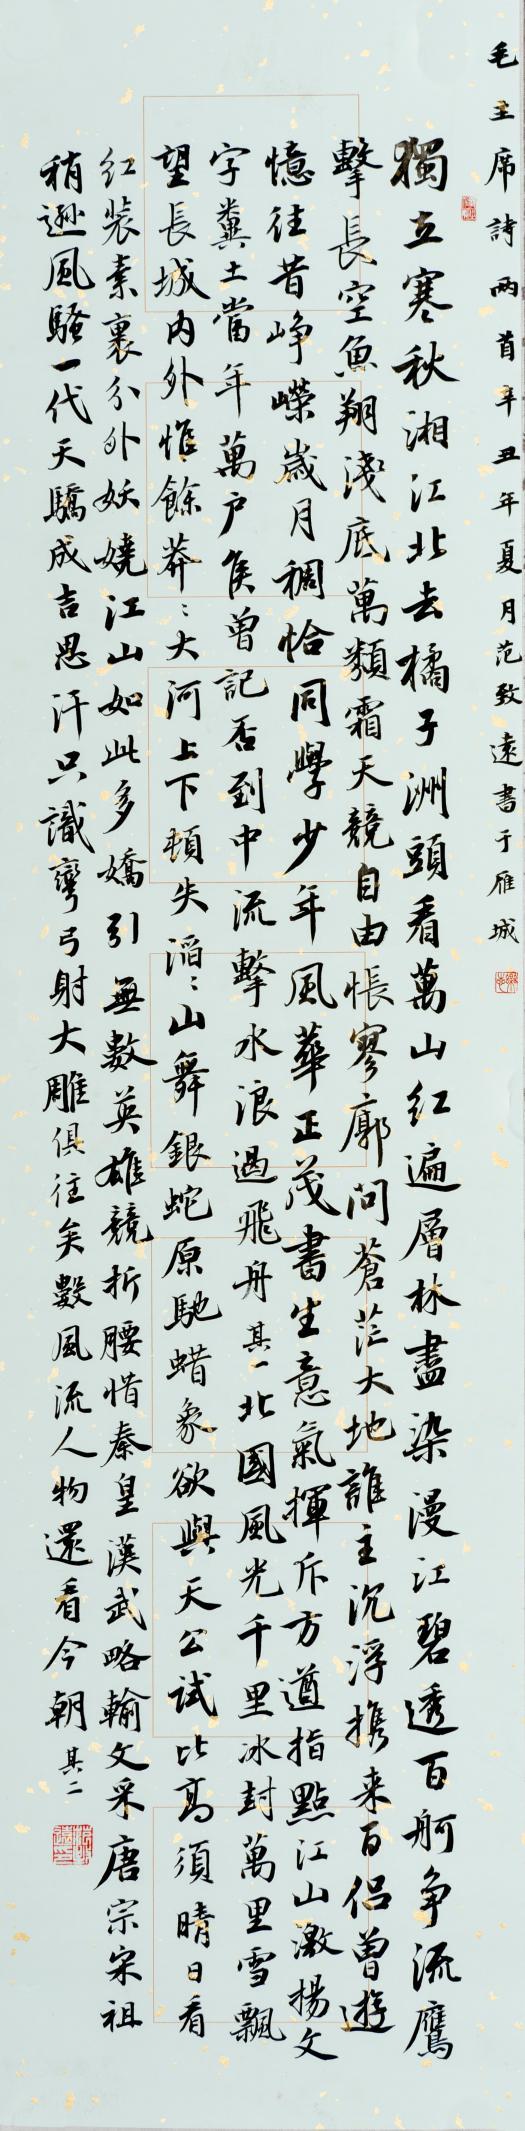 毛主席詩兩首辛丑年夏月范致遠書于雁城
獨立寒秋湘江北去橘子洲頭看萬山红遍層林盡染漫江碧透百舸争流鷹
擊長空魚翔淺底萬類霜天競自由悵寥廓问蒼茫大地誰主沉浮携来百侣曾遊
憶往昔峥嶸歲月稠恰同學少年風華正茂書生意氣揮斥方遒指點江山激揚文
字糞土當年萬户侯曾記否到中流擊水浪遏飛舟其一北國風光千里冰封萬里雪飄
望長城内外惟餘莽〻大河上下頓失滔〻山舞銀蛇原馳蜡象欲與天公試比高須晴日看
红裝素裹分外妖嬈江山如此多嬌引無數英雄競折腰惜秦皇漢武略輸文采唐宗宋祖
稍遜風騷一代天驕成吉思汗只識彎弓射大雕俱往矣數風流人物還看今朝其二